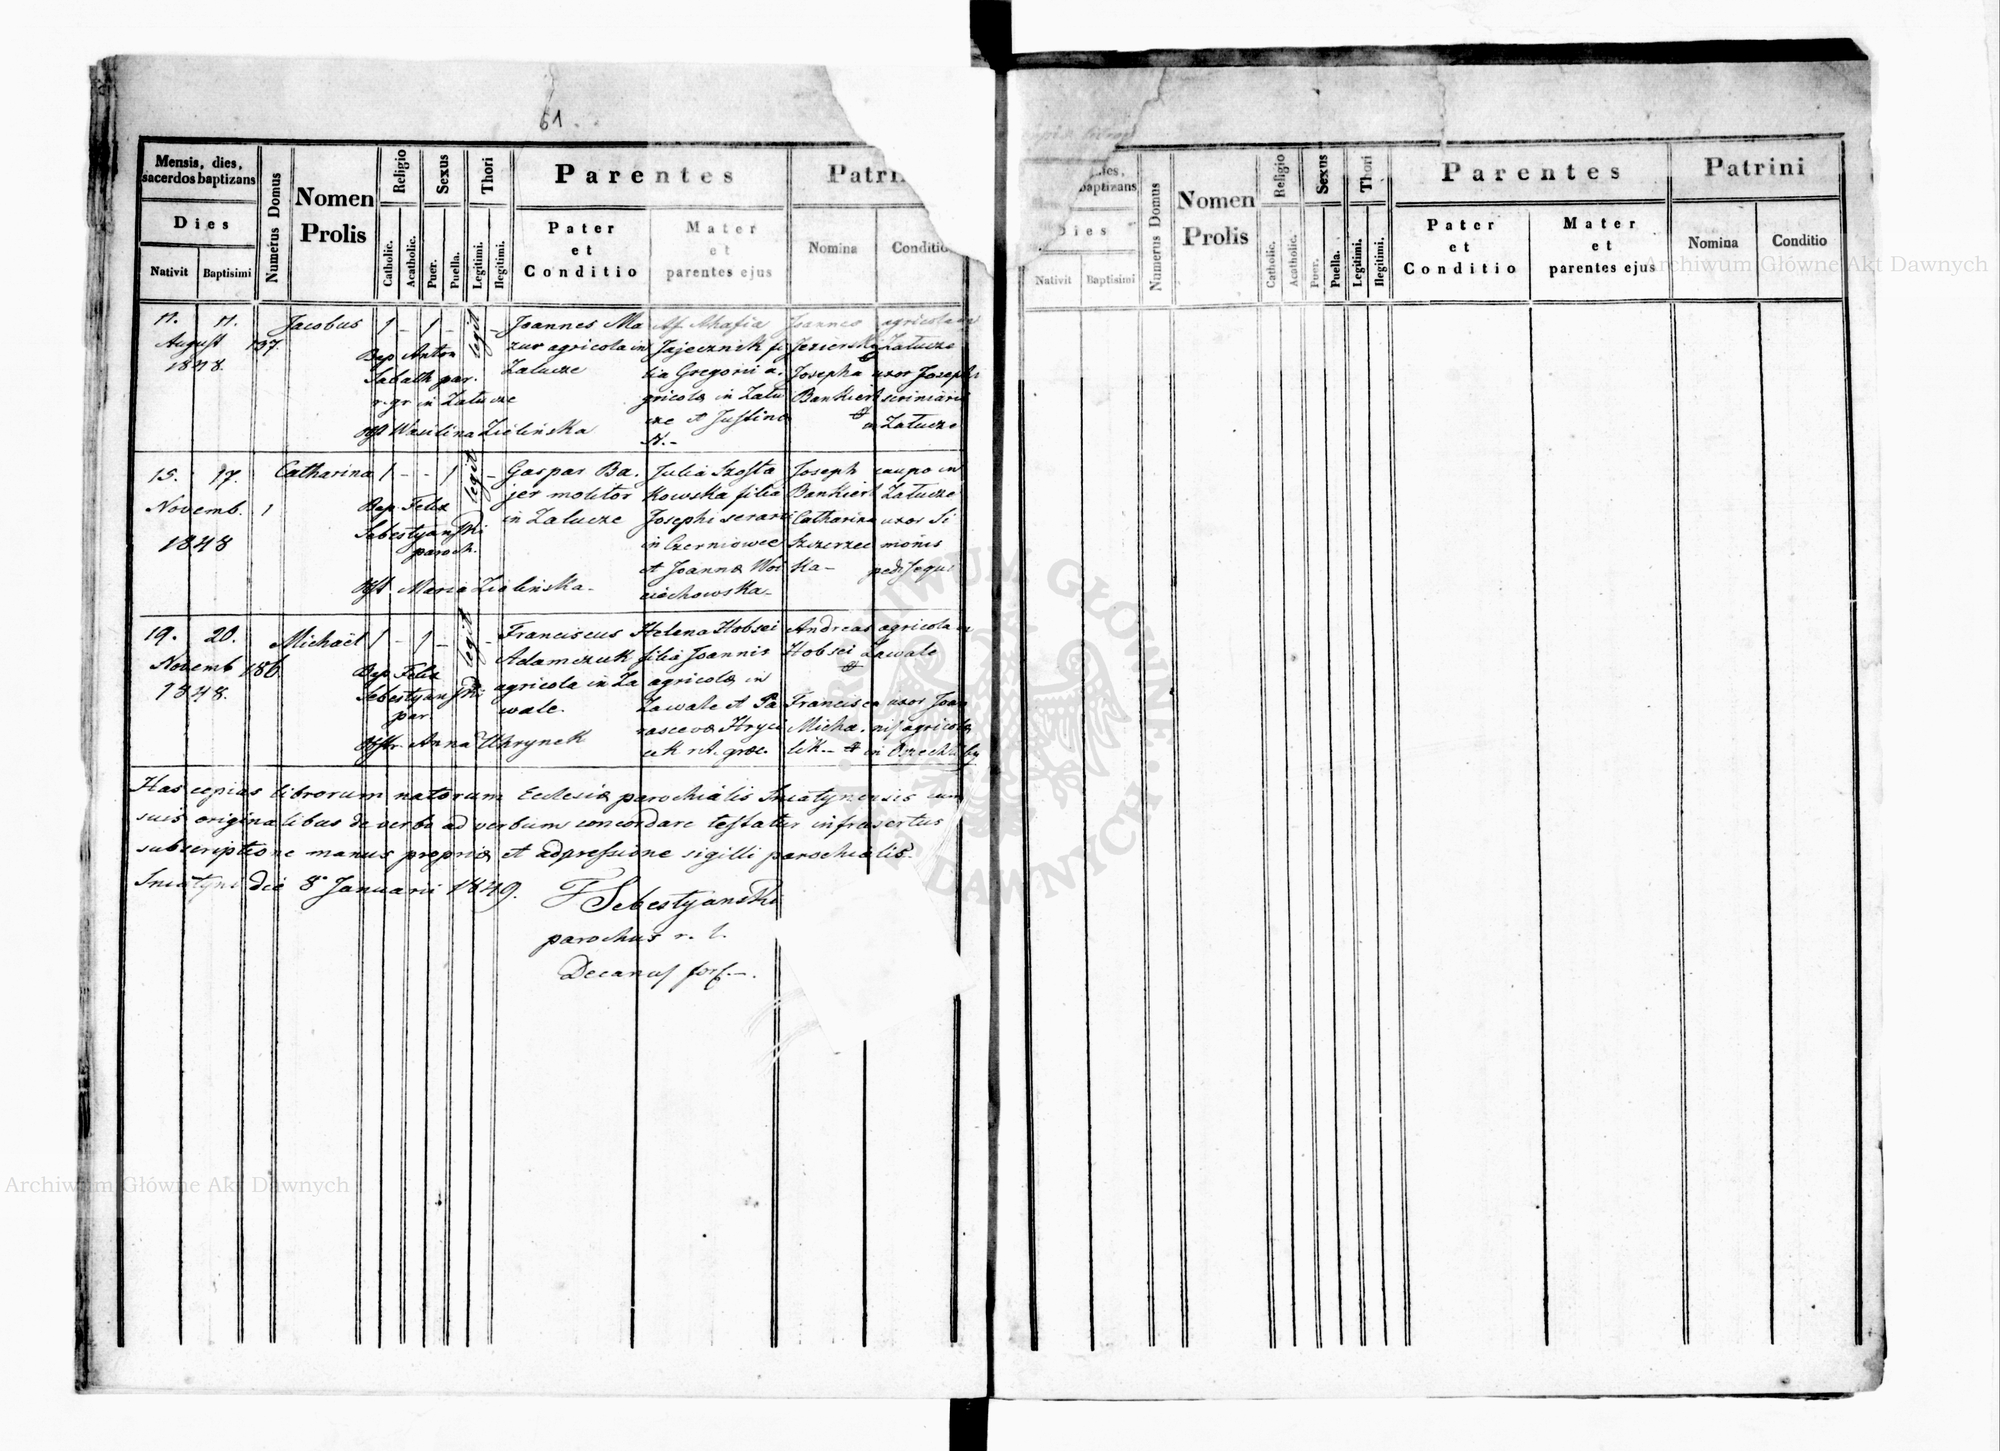 61.
Mensis, dies,
sacerdos baptizans
Dies
Nativit
Baptisimi
Numerus Domus
Nomen
Prolis
Religio
Catholic.
Acatholic.
Sexus
Puer.
Puella.
Thori
Legitimi.
Ilegitimi.
Parentes
Pater
et
Conditio
Mater
et
parentes ejus
Patri
Nomina
Conditio
11. 11.
August 137.
1848.
Jacobus 1 - 1 - legit -
Bap Anton
Sabath par.
r. gr in Zalucze
Obst Wasilina Zielińska
Joannes Ma
zur agricola in
Zalucze
Ahafia
Jajecznik fi
lia Gregorii a.
gricolæ in Zalu
cze et Justinæ
N.-
Joannes
Jezierski
&
Josepha
Bankiert
&
agricola in
Zalucze
uxor Josephi
in Zalucze
15. 17.
Novemb. 1
1848
Catharina 1 - - 1 legit -
Bap. Felix
Sebestyański
paroch.
Obst. Maria Zielińska-
Gaspar Ba.
jer molitor
in Zalucze
Julia Szosta
kowska filia
Josephi
in Czerniowce
et Joannæ Woi
ciechowska-
Joseph
Bankiert
Catharina
Szczerzec
ka-
caupo in
Zalucze
uxor Si
monis
pedissequi
19. 20.
Novemb 186.
1848.
Michaël 1 - 1 - legit -
Bap Felix
Sebestyański
par.
Obstr. Anna Uhrynek
Franciscus
Adamczuk
agricola in Za
wale.
Helena Hobsei
filia Joannis
agricolæ in
Zawale et Pa
rascevæ Hryci
uk rit. græc.
Andreas
Hobsei
&
Francisca
Micha.
lik- &
agricola in
Zawale
uxor Joan
nis agricolæ
in
Has copias librorum natorum Ecclesiæ parochialis Sniatynensis cum
suis originalibus de verbo ad verbum concordare testatur infrasertus
subscriptione manus propriæ et adpressione sigilli parochialis.
Sniatyni die 8 Januarii 1849.
F Sebestyański
parochus r. l.
Decanus for.-.
dies,
baptizans
Dies
Nativit
Baptisimi
Numerus Domus
Nomen
Prolis
Religio
Catholic.
Acatholic.
Sexus
Puer.
Puella.
Thori
Legitimi.
Ilegitimi.
Parentes
Pater
et
Conditio
Mater
et
parentes ejus
Patrini
Nomina
Conditio
Archiwum Główne Akt Dawnych
Archiwum Główne Akt Dawnych
ARCHIWUM GŁÓWNE · AKT DAWNYCH ·